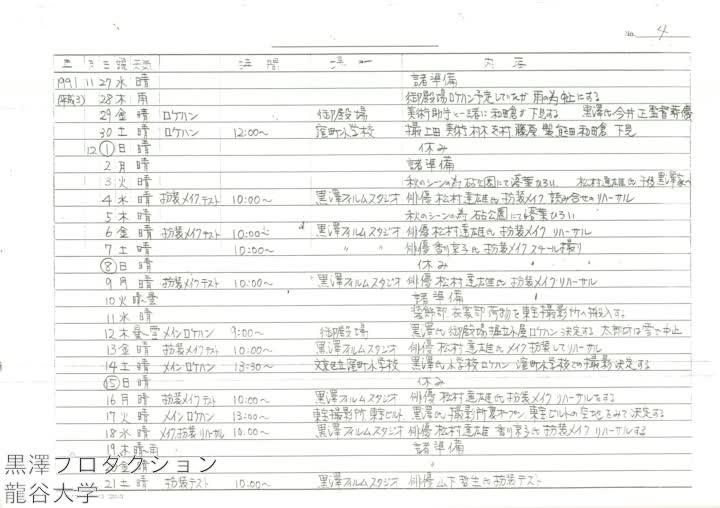 No. 4
年 月 日 曜 天気 時間 場所 内容
1991 11 27 水 晴 諸準備
(平成3) 28 木 雨 御殿場ロケハン予定していたが 雨の為中止にする
29 金 晴 ロケハン 御殿場 美術助手と一緒に和田倉が下見する 黒澤氏今井正監督葬儀
30 土 晴 ロケハン 12:00〜 窪町小学校 撮上田 美術村木 藤原 製熊田 和田倉 下見
12 1 日 晴 休み
2 月 晴 諸準備
3 火 晴 秋のシーンの為 砧公園にて落葉ひろい 松村達雄氏 黒澤家へ
4 水 晴 扮装メイクテスト 10:00〜 黒澤フィルムスタジオ 俳優 松村達雄氏 扮装メイク 読み合せのリハーサル
5 木 晴 秋のシーンの為 砧公園にて落葉ひろい
6 金 晴 扮装メイクテスト 10:00〜 黒澤フィルムスタジオ 俳優 松村達雄氏 扮装メイクリハーサル
7 土 晴 10:00〜 〃 〃 俳優 香川京子氏 扮装メイク スチール撮り
8 日 晴 休み
9 月 晴 扮装メイクテスト 10:00〜 黒澤フィルムスタジオ 俳優 松村達雄氏 扮装メイクリハーサル
10 火 晴〜曇 諸準備
11 水 晴 装飾部 衣装部 荷物を東宝撮影所へ搬入する。
12 木 曇〜雪 メインロケハン 9:00〜 御殿場 黒澤氏 御殿場 ロケハン 決定する 雪で中止
13 金 晴 扮装メイクテスト 10:00〜 黒澤フィルムスタジオ 俳優 松村達雄氏 メイク扮装してリハーサル
14 土 晴 メインロケハン 13:30〜 文京区立窪町小学校 黒澤氏小学校ロケハン 窪町小学校での撮影決定する
15 日 晴 休み
16 月 晴 扮装メイクテスト 10:00〜 黒澤フィルムスタジオ 俳優 松村達雄氏 扮装メイクリハーサルをする
17 火 晴 メインロケハン 13:00〜 東宝撮影所 東宝ビルト 黒澤氏 撮影所裏オープン 東宝ビルトの空地をみて決定する
18 水 晴 メイク扮装リハーサル 10:00〜 黒澤フィルムスタジオ 俳優 松村達雄 香川京子氏 扮装メイク リハーサルする
19 木 晴〜雨 諸準備
20 金 晴 〃
21 土 晴 扮装テスト 10:00〜 黒澤フィルムスタジオ 俳優 山下哲生氏 扮装テスト
黒澤プロダクション
龍谷大学